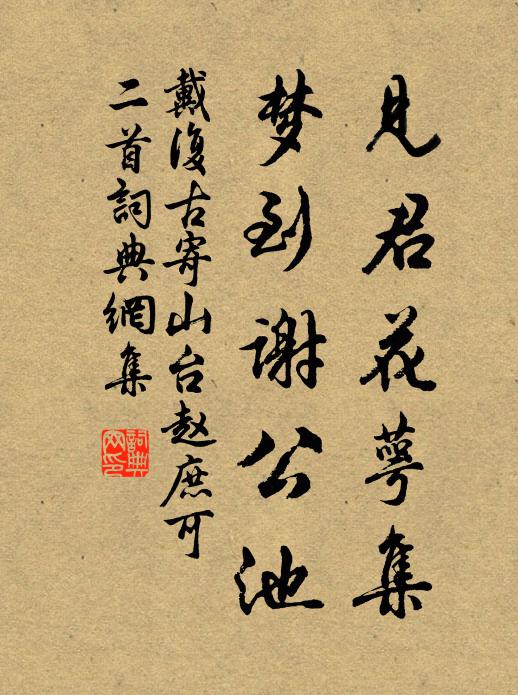 见君花萼集
梦到谢公池
戴復古寄山台赵庶可
二首詞典網集
詞典網印